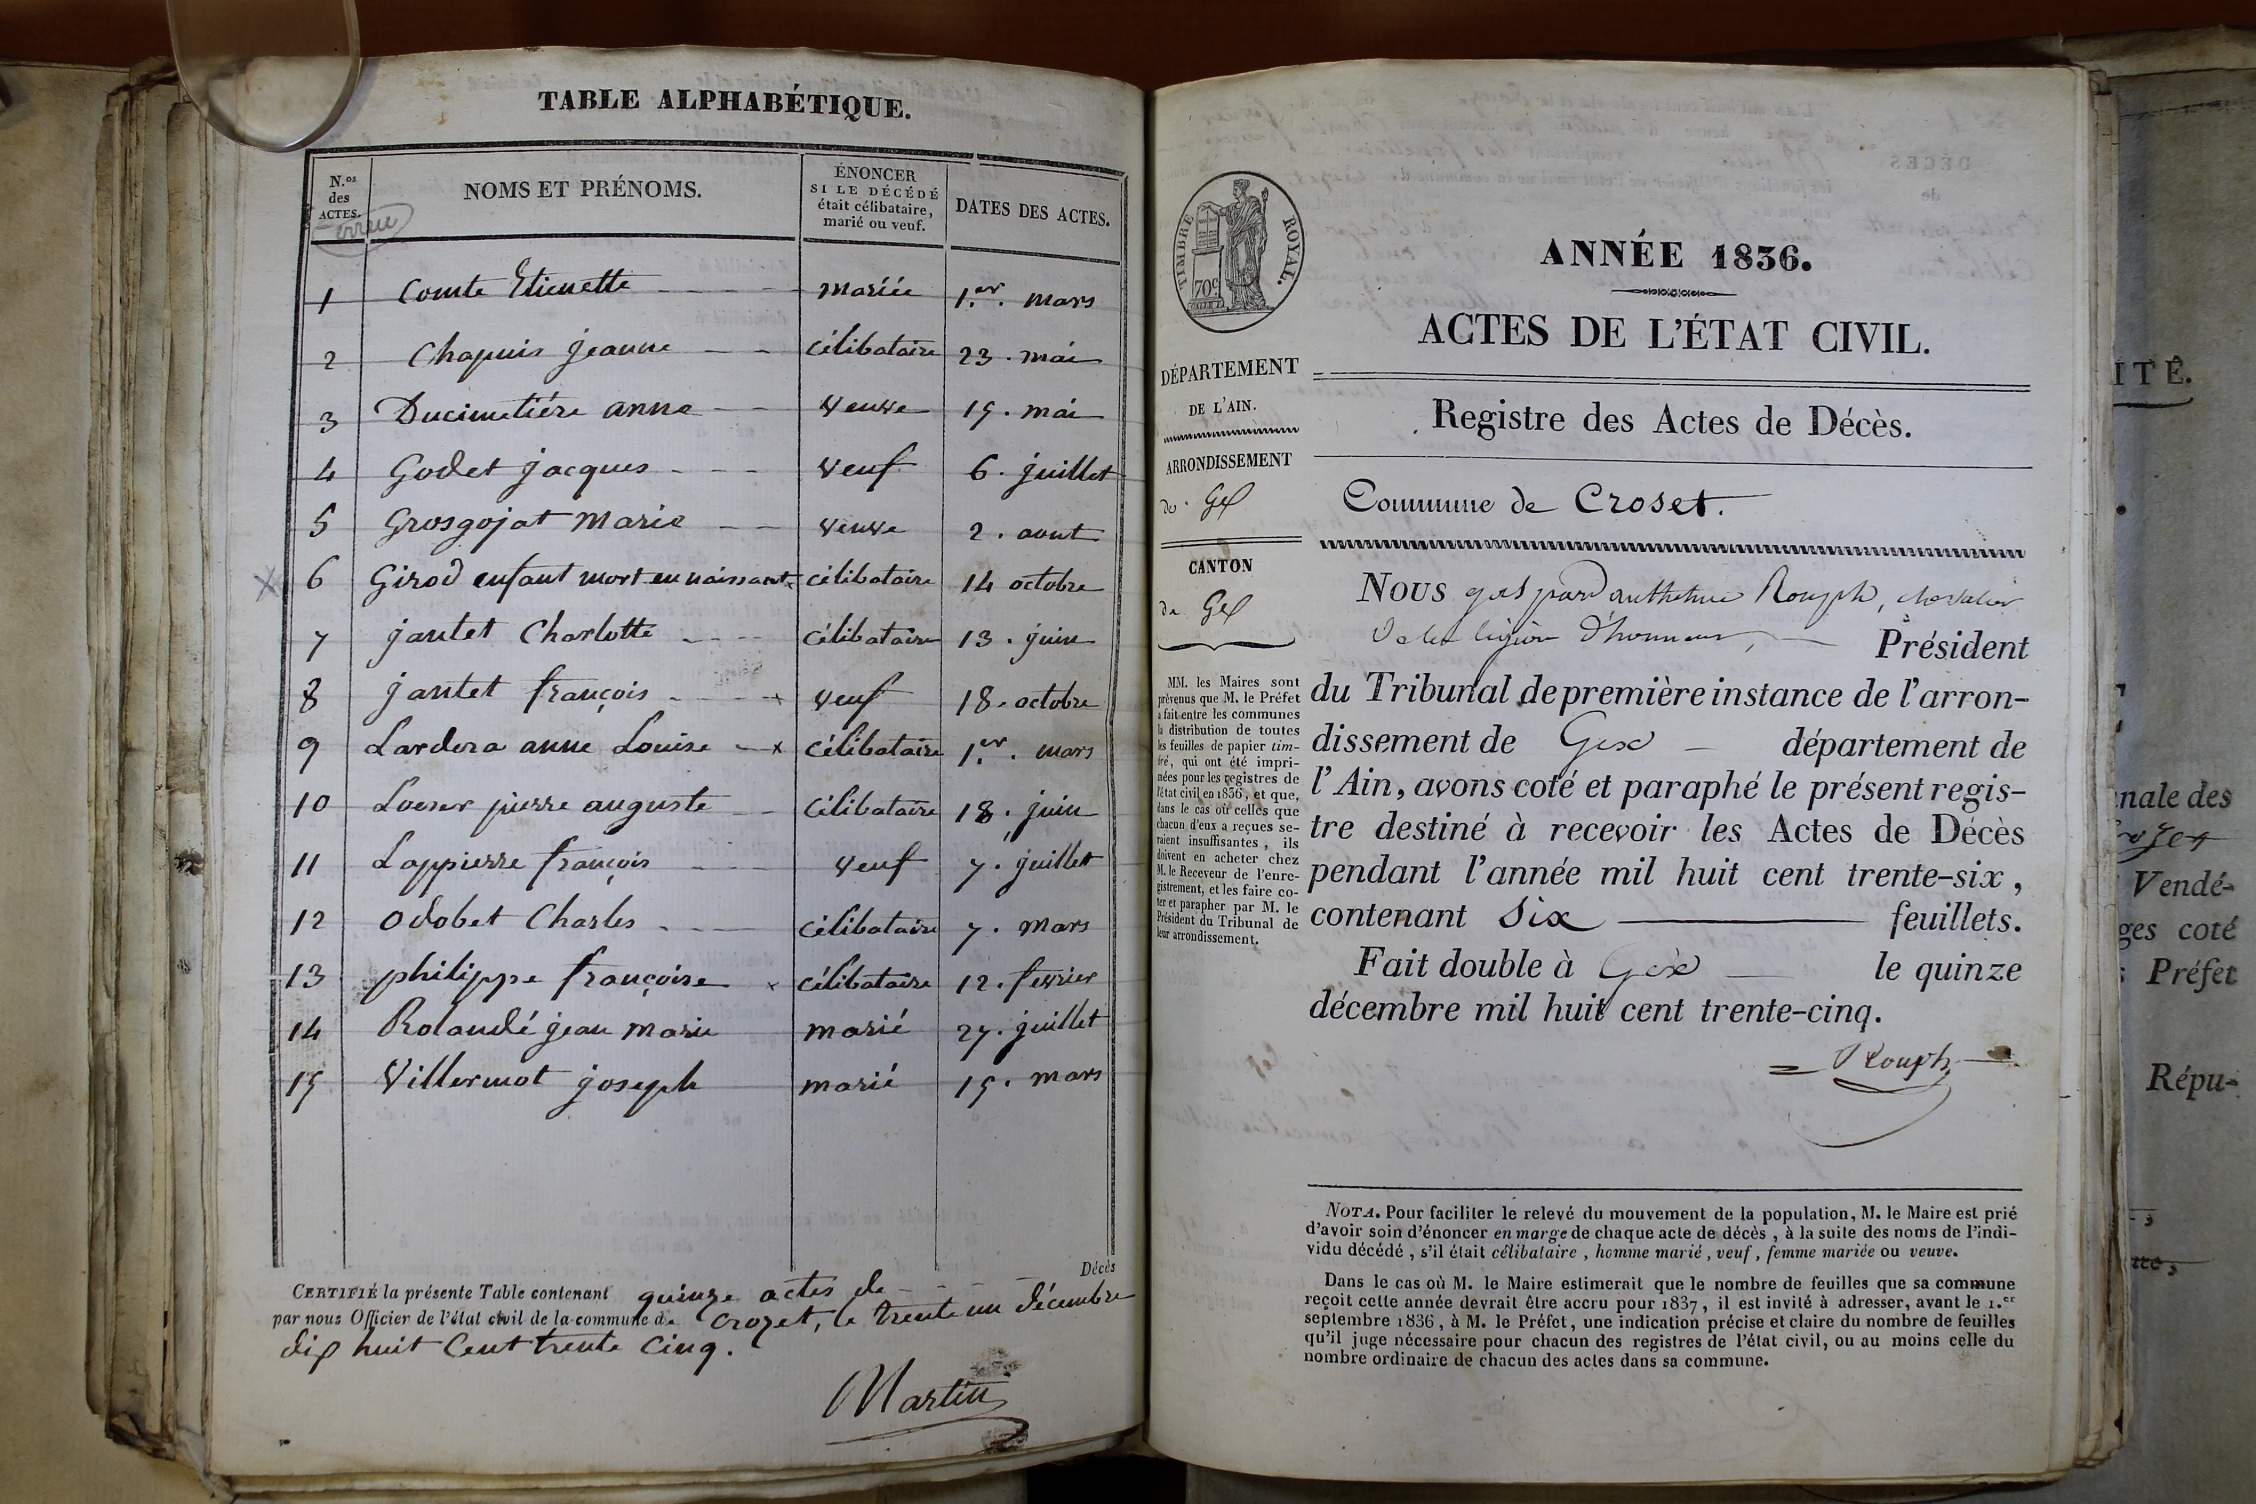 TABLE ALPHABÉTIQUE.
N.os des ACTES.
NOMS ET PRÉNOMS.
ÉNONCER SI LE DÉCÉDÉ était célibataire, marié ou veuf.
DATES DES ACTES.
erreur
1 Comte Etienette mariée 1.er. mars
2 Chapuis jeanne célibataire 23. mai
3 Ducimetiére anne veuve 15. mai
4 Godet jacques veuf 6. juillet
5 Grosgojat Marie veuve 2. aout
6 Girod enfant mort en naissant célibataire 14 octobre
7 jantet Charlotte célibataire 13. juin
8 jantet françois veuf 18. octobre
9 Lardera anne Louise célibataire 1.er. mars
10 pierre auguste célibataire 18. juin
11 Lappierre françois veuf 7. juillet
12 Odobet Charles célibataire 7. mars
13 philippe françoise célibataire 12. fevrier
14 Rolandé jean marie marié 27. juillet
15 Villermot joseph marié 15. mars
Décès
CERTIFIÉ la présente Table contenant quinze actes de
par nous Officier de l'état civil de la commune de Crozet, le trente un décembre
dix huit Cent trente Cinq.
Martin
TIMBRE ROYAL.
70c
DÉPARTEMENT
DE L'AIN.
ARRONDISSEMENT
de Gex
CANTON
de Gex
MM. les Maires sont
prévenus que M. le Préfet
a fait entre les communes
la distribution de toutes
les feuilles de papier tim-
bré, qui ont été impri-
mées pour les registres de
l'état civil en 1836, et que,
dans le cas où celles que
chacun d'eux a reçues se-
raient insuffisantes, ils
doivent en acheter chez
M. le Receveur de l'enre-
gistrement, et les faire co-
ter et parapher par M. le
Président du Tribunal de
leur arrondissement.
ANNÉE 1836.
ACTES DE L'ÉTAT CIVIL.
Registre des Actes de Décès.
Commune de Croset.
NOUS gaspard Rouph, chevalier
de la légion d'honneur, Président
du Tribunal de première instance de l'arron-
dissement de Gex département de
l'Ain, avons coté et paraphé le présent regis-
tre destiné à recevoir les Actes de Décès
pendant l'année mil huit cent trente-six,
contenant six feuillets.
Fait double à Gex le quinze
décembre mil huit cent trente-cinq.
Rouph
NOTA. Pour faciliter le relevé du mouvement de la population, M. le Maire est prié
d'avoir soin d'énoncer en marge de chaque acte de décès, à la suite des noms de l'indi-
vidu décédé, s'il était célibataire, homme marié, veuf, femme mariée ou veuve.
Dans le cas où M. le Maire estimerait que le nombre de feuilles que sa commune
reçoit cette année devrait être accru pour 1837, il est invité à adresser, avant le 1.er
septembre 1836, à M. le Préfet, une indication précise et claire du nombre de feuilles
qu'il juge nécessaire pour chacun des registres de l'état civil, ou au moins celle du
nombre ordinaire de chacun des actes dans sa commune.
ITÉ.
nale des
Vendé-
ges coté
Préfet
Répu-